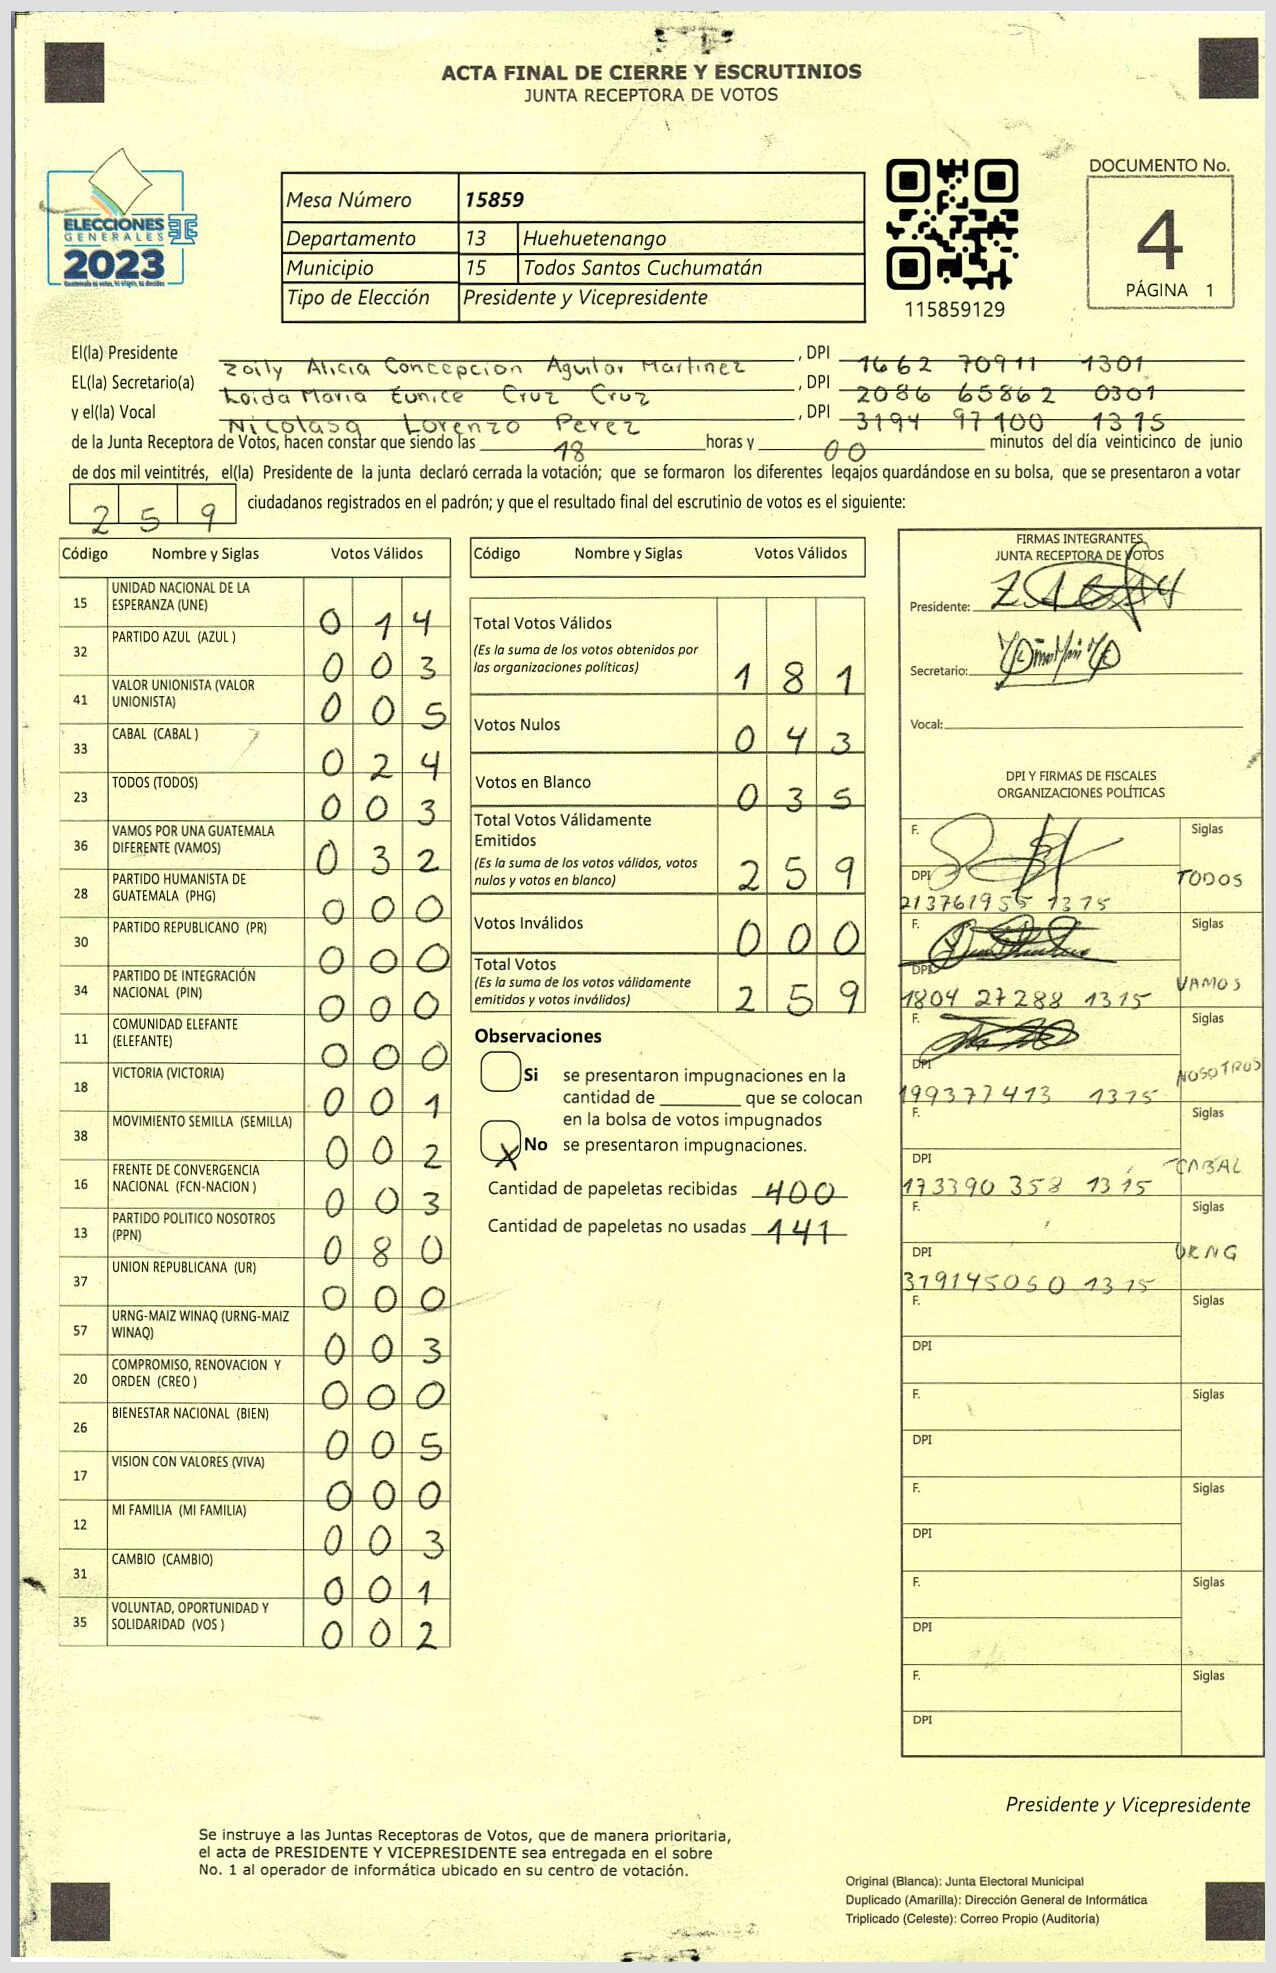 ACTA FINAL DE CIERRE Y ESCRUTINIOS
JUNTA RECEPTORA DE VOTOS
ELECCIONES
GENERALES
2023
Mesa Número 15859
Departamento 13 Huehuetenango
Municipio 15 Todos Santos Cuchumatán
Tipo de Elección Presidente y Vicepresidente
115859129
DOCUMENTO No.
4
PÁGINA 1
El(la) Presidente Zoily Alicia Concepcion Aguilar Martinez, DPI 1662 70911 1301
EL(la) Secretario(a) Loida Maria Eunice Cruz Cruz, DPI 2086 65862 0301
y el(la) Vocal Nicolasa Lorenzo Perez, DPI 3194 97100 1315
de la Junta Receptora de Votos, hacen constar que siendo las 18 horas y 00 minutos del día veinticinco de junio
de dos mil veintitrés, el(la) Presidente de la junta declaró cerrada la votación; que se formaron los diferentes legajos guardándose en su bolsa, que se presentaron a votar
259 ciudadanos registrados en el padrón; y que el resultado final del escrutinio de votos es el siguiente:
Código Nombre y Siglas Votos Válidos
15 UNIDAD NACIONAL DE LA ESPERANZA (UNE) 014
32 PARTIDO AZUL (AZUL ) 003
41 VALOR UNIONISTA (VALOR UNIONISTA) 005
33 CABAL (CABAL ) 024
23 TODOS (TODOS) 003
36 VAMOS POR UNA GUATEMALA DIFERENTE (VAMOS) 032
28 PARTIDO HUMANISTA DE GUATEMALA (PHG) 000
30 PARTIDO REPUBLICANO (PR) 000
34 PARTIDO DE INTEGRACIÓN NACIONAL (PIN) 000
11 COMUNIDAD ELEFANTE (ELEFANTE) 000
18 VICTORIA (VICTORIA) 001
38 MOVIMIENTO SEMILLA (SEMILLA) 002
16 FRENTE DE CONVERGENCIA NACIONAL (FCN-NACION ) 003
13 PARTIDO POLITICO NOSOTROS (PPN) 080
37 UNION REPUBLICANA (UR) 000
57 URNG-MAIZ WINAQ (URNG-MAIZ WINAQ) 003
20 COMPROMISO, RENOVACION Y ORDEN (CREO ) 000
26 BIENESTAR NACIONAL (BIEN) 005
17 VISION CON VALORES (VIVA) 000
12 MI FAMILIA (MI FAMILIA) 003
31 CAMBIO (CAMBIO) 001
35 VOLUNTAD, OPORTUNIDAD Y SOLIDARIDAD (VOS ) 002
Código Nombre y Siglas Votos Válidos
Total Votos Válidos 181
(Es la suma de los votos obtenidos por
las organizaciones políticas)
Votos Nulos 043
Votos en Blanco 035
Total Votos Válidamente
Emitidos 259
(Es la suma de los votos válidos, votos
nulos y votos en blanco)
Votos Inválidos 000
Total Votos 259
(Es la suma de los votos válidamente
emitidos y votos inválidos)
Observaciones
Si se presentaron impugnaciones en la
cantidad de ________ que se colocan
en la bolsa de votos impugnados
X No se presentaron impugnaciones.
Cantidad de papeletas recibidas 400
Cantidad de papeletas no usadas 141
FIRMAS INTEGRANTES
JUNTA RECEPTORA DE VOTOS
Presidente:
Secretario:
Vocal:
DPI Y FIRMAS DE FISCALES
ORGANIZACIONES POLÍTICAS
F. Siglas
DPI TODOS
213761955 1315
F. Siglas
DPI VAMOS
1804 27288 1315
F. Siglas
DPI NOSOTROS
199377413 1315
F. Siglas
DPI CABAL
173390 358 1315
F. Siglas
DPI URNG
319145050 1315
F. Siglas
DPI
F. Siglas
DPI
F. Siglas
DPI
F. Siglas
DPI
F. Siglas
DPI
Presidente y Vicepresidente
Se instruye a las Juntas Receptoras de Votos, que de manera prioritaria,
el acta de PRESIDENTE Y VICEPRESIDENTE sea entregada en el sobre
No. 1 al operador de informática ubicado en su centro de votación.
Original (Blanca): Junta Electoral Municipal
Duplicado (Amarilla): Dirección General de Informática
Triplicado (Celeste): Correo Propio (Auditoria)